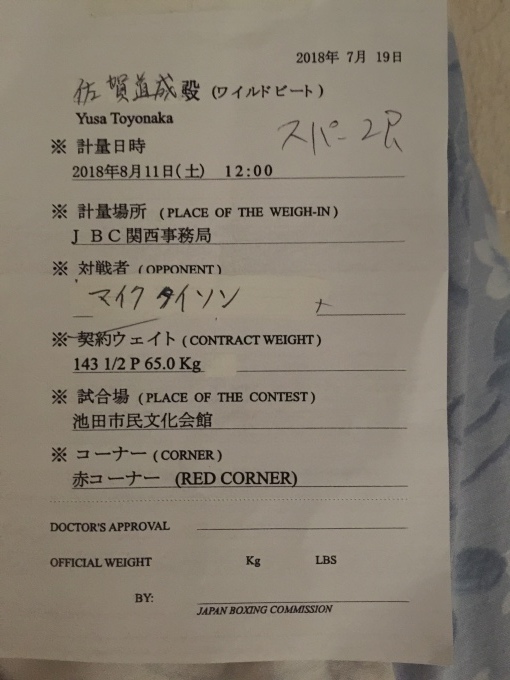 2018年 7月 19日
佐賀道成殿 (ワイルドビート)
Yusa Toyonaka
スパー 2R
※ 計量日時
2018年8月11日(土) 12:00
※ 計量場所 (PLACE OF THE WEIGH-IN)
J B C 関西事務局
※ 対戦者 (OPPONENT)
マイク タイソン
※ 契約ウェイト (CONTRACT WEIGHT)
143 1/2 P 65.0 Kg
※ 試合場 (PLACE OF THE CONTEST)
池田市民文化会館
※ コーナー (CORNER)
赤コーナー (RED CORNER)
DOCTOR'S APPROVAL
OFFICIAL WEIGHT Kg LBS
BY:
JAPAN BOXING COMMISSION